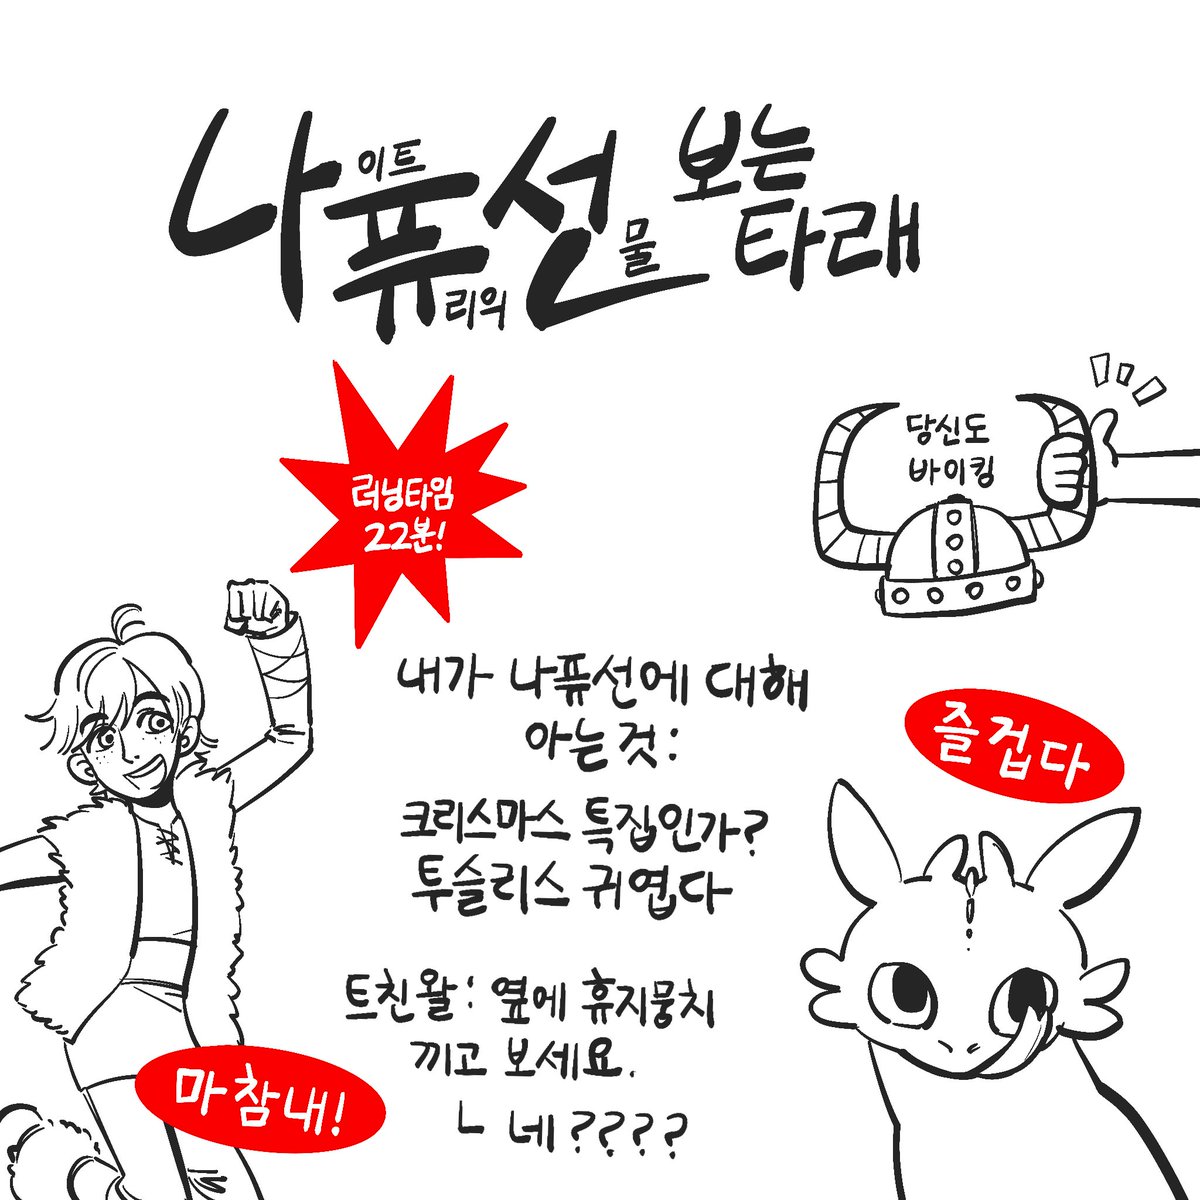 나이트퓨리의 선물 보는
타래
러닝타임
22분!
당신도
바이킹
내가 나퓨선에 대해
아는 것:
즐겁다
크리스마스 특집인가?
투슬리스 귀엽다
트친왈: 옆에 휴지뭉치
끼고 보세요.
ㄴ 네????
마참내!